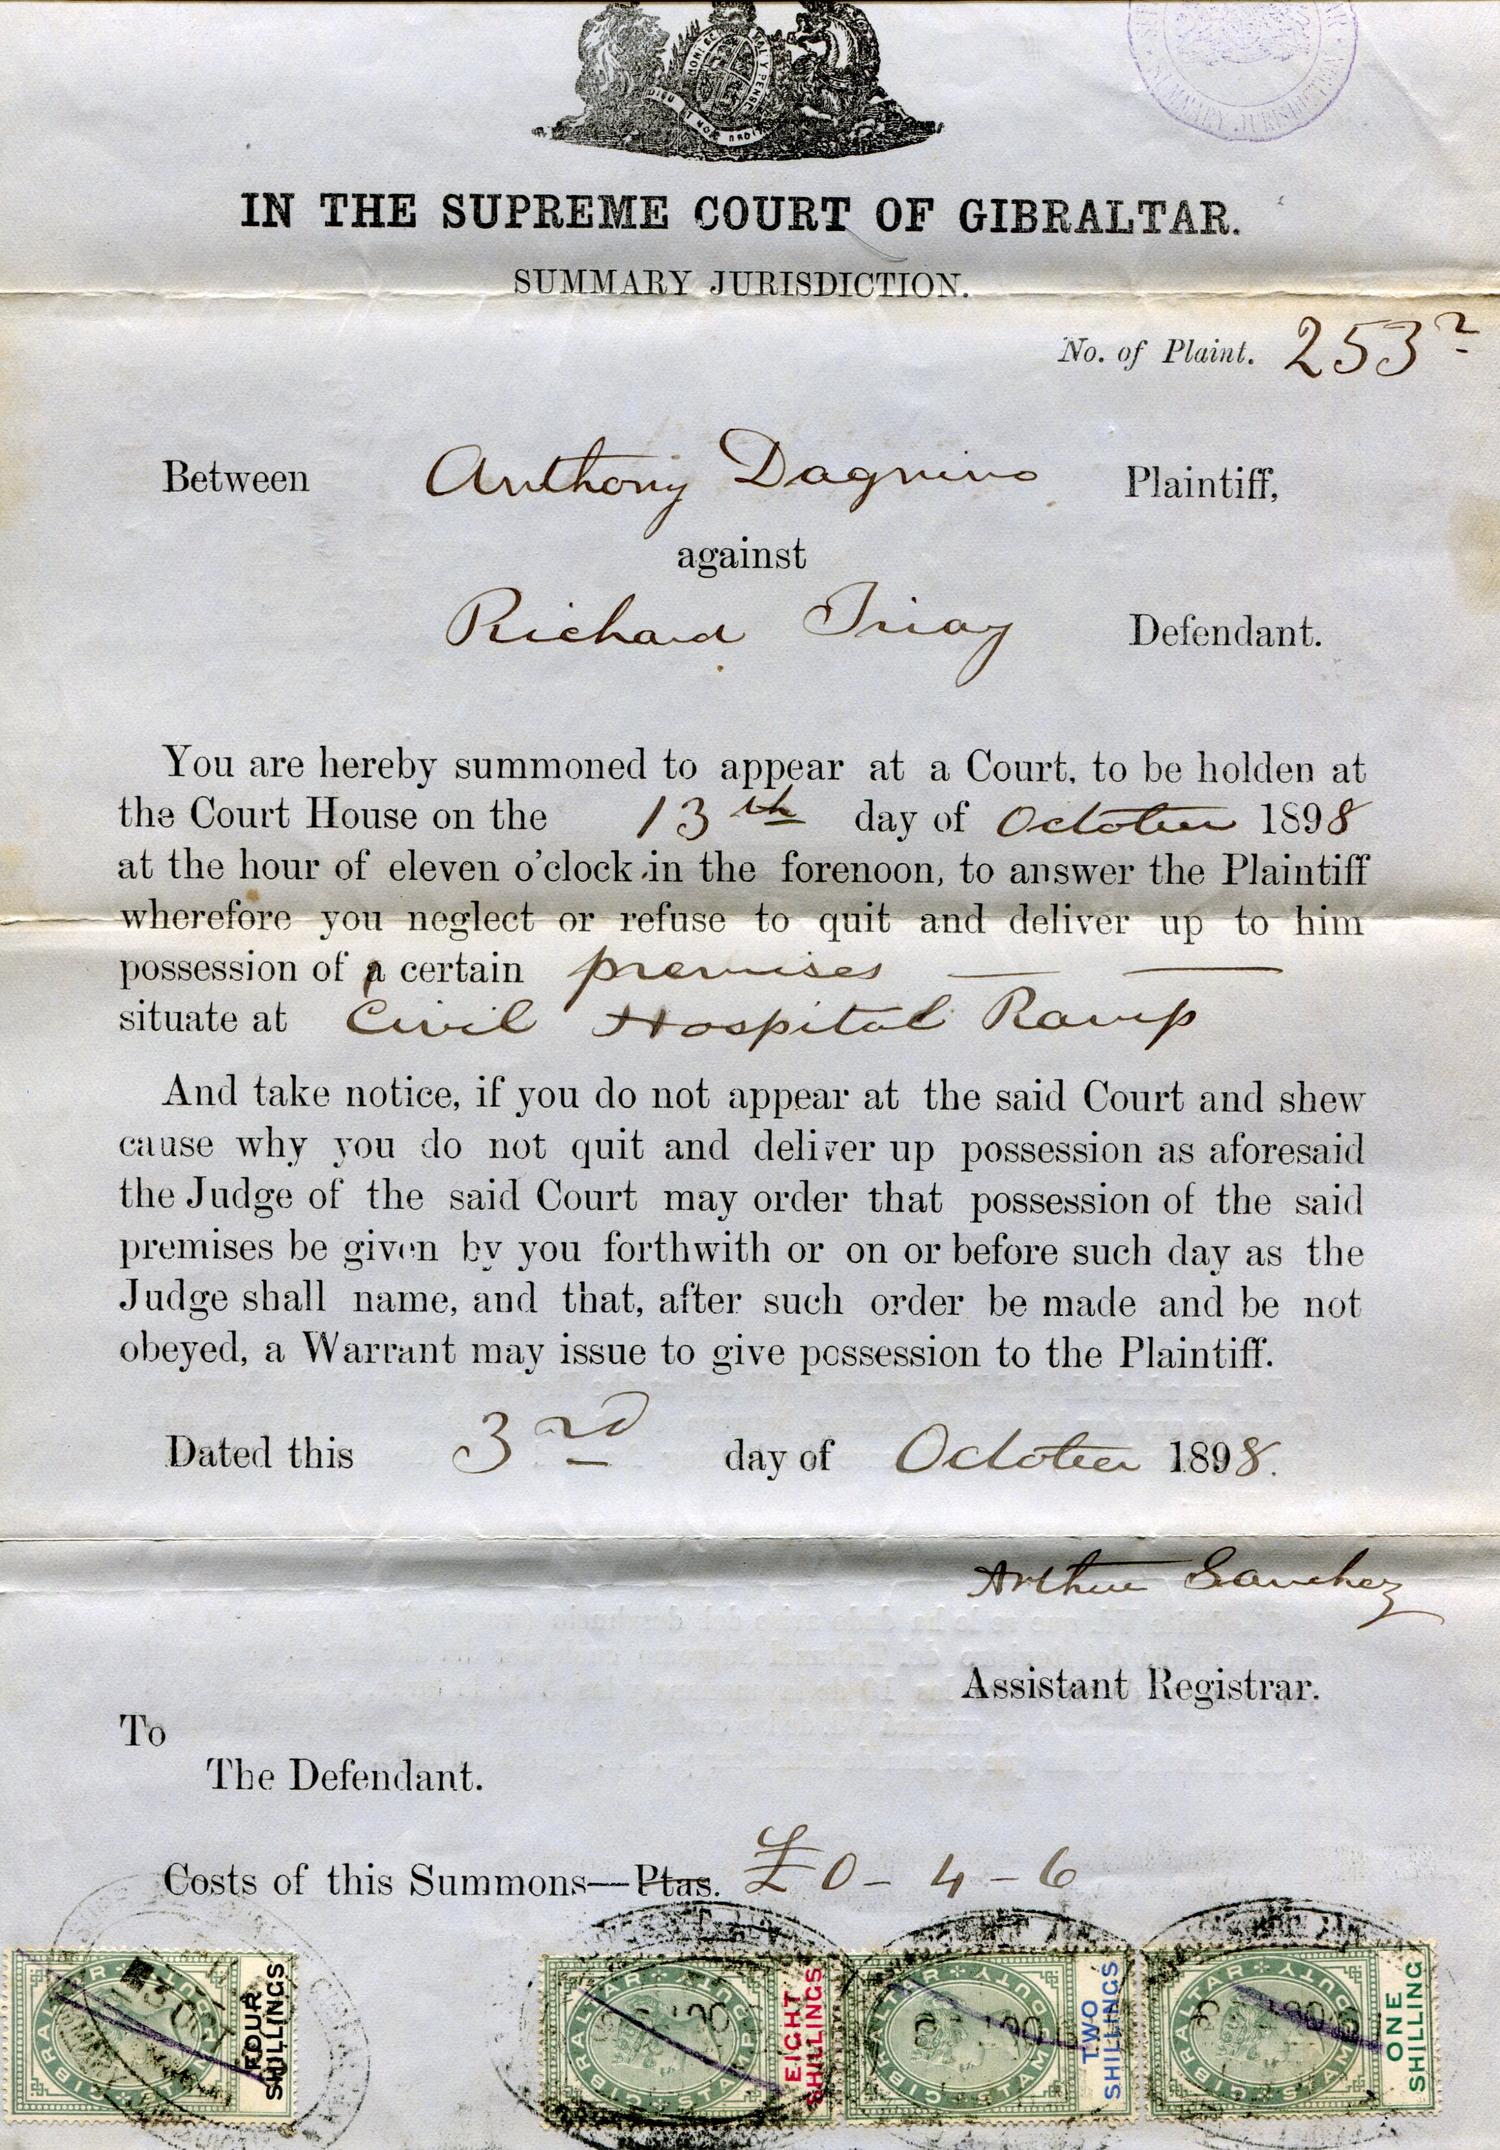 HONI
MAL Y PENSE
DIEU ET MON DROIT
SUMMARY JURISDICTION
IN THE SUPREME COURT OF GIBRALTAR.
SUMMARY JURISDICTION.
No. of Plaint. 253
Between Anthony Dagnino Plaintiff,
against
Richard Triay Defendant.
You are hereby summoned to appear at a Court, to be holden at
the Court House on the 13th day of October 1898
at the hour of eleven o'clock in the forenoon, to answer the Plaintiff
wherefore you neglect or refuse to quit and deliver up to him
possession of a certain premises
situate at Civil Hospital Ramp
And take notice, if you do not appear at the said Court and shew
cause why you do not quit and deliver up possession as aforesaid
the Judge of the said Court may order that possession of the said
premises be given by you forthwith or on or before such day as the
Judge shall name, and that, after such order be made and be not
obeyed, a Warrant may issue to give possession to the Plaintiff.
Dated this 3rd day of October 1898.
Arthur Sanchez
Assistant Registrar.
To
The Defendant.
Costs of this Summons—Ptas. £0-4-6
GIBRALTAR STAMP DUTY
FOUR SHILLINGS
GIBRALTAR STAMP DUTY
EIGHT SHILLINGS
GIBRALTAR STAMP DUTY
TWO SHILLINGS
GIBRALTAR STAMP DUTY
ONE SHILLING